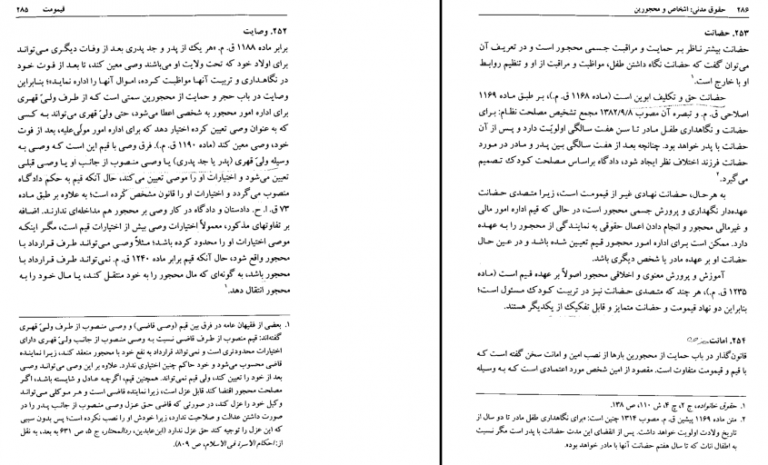 قیمومت ۲۸۵
۲۵۲. وصایت
برابر ماده ۱۱۸۸ ق. م. «هر یک از پدر و جد پدری بعد از وفات دیگری می‌تواند
برای اولاد خود که تحت ولایت او می‌باشند وصی معین کند، تا بعد از فوت خود
در نگاهداری و تربیت آنها مواظبت کرده، اموال آنها را اداره نماید»؛ بنابراین
وصایت در باب حجر و حمایت از محجورین سمتی است که از طرف ولیّ قهری
برای اداره امور محجور به شخصی اعطا می‌شود، حتی ولیّ قهری می‌تواند به کسی
که به عنوان وصی تعیین کرده اختیار دهد که برای اداره امور مولّی‌علیه، بعد از فوت
خود، وصی معین کند (ماده ۱۱۹۰ ق. م.). فرق وصی با قیم این است که وصی به
وسیله ولیّ قهری (پدر یا جد پدری) یا وصی منصوب از جانب او یا وصی قبلی
تعیین می‌شود و اختیارات او را موصی تعیین می‌کند، حال آنکه قیم به حکم دادگاه
منصوب می‌گردد و اختیارات او را قانون مشخص کرده است؛ به علاوه بر طبق ماده
۷۳ ق. ا. ح. دادستان و دادگاه در کار وصی بر محجور هم مداخله‌ای ندارند. اضافه
بر تفاوتهای مذکور، معمولاً اختیارات وصی بیش از اختیارات قیم است، مگر اینکه
موصی اختیارات او را محدود کرده باشد؛ مثلاً وصی می‌تواند طرف قرارداد با
محجور واقع شود، حال آنکه قیم برابر ماده ۱۲۴۰ ق. م. نمی‌تواند طرف قرارداد با
محجور باشد، به گونه‌ای که مال محجور را به خود منتقل کند، یا مال خود را به
محجور انتقال دهد.۱
۱. بعضی از فقیهان عامه در فرق بین قیم (وصی قاضی) و وصی منصوب از طرف ولیّ قهری
گفته‌اند: قیم منصوب از طرف قاضی نسبت به وصی منصوب از جانب ولیّ قهری دارای
اختیارات محدودتری است و نمی‌تواند قرارداد به نفع خود با محجور منعقد کند، زیرا نماینده
قاضی محسوب می‌شود و خود حاکم چنین اختیاری ندارد. علاوه بر این وصی می‌تواند وصی
بعد از خود را تعیین کند، ولی قیم نمی‌تواند. همچنین قیم، اگرچه عادل و شایسته باشد، اگر
مصلحت محجور اقتضا کند قابل عزل است، زیرا نماینده قاضی است و هر موکلی می‌تواند
وکیل خود را عزل کند، در صورتی که قاضی حق عزل وصی منصوب از جانب پدر را در
صورت داشتن عدالت و صلاحیت ندارد، زیرا خودش او را نصب نکرده است؛ پس بدون سببی
که این عزل را توجیه کند حق عزل ندارد (ابن‌عابدین، ردالمحتار، ج ۵، ص ۶۳۱ به بعد، به نقل
از: احکام الاسرة فی الاسلام، ص ۸۰۹).
۲۸۶ حقوق مدنی: اشخاص و محجورین
۲۵۳. حضانت
حضانت بیشتر ناظر بر حمایت و مراقبت جسمی محجور است و در تعریف آن
می‌توان گفت که حضانت نگاه داشتن طفل، مواظبت و مراقبت از او و تنظیم روابط
او با خارج است.۱
حضانت حق و تکلیف ابوین است (ماده ۱۱۶۸ ق. م.)، بر طبق ماده ۱۱۶۹
اصلاحی ق. م. و تبصره آن مصوب ۱۳۸۲/۹/۸ مجمع تشخیص مصلحت نظام: برای
حضانت و نگاهداری طفل مادر تا سن هفت سالگی اولویّت دارد و پس از آن
حضانت با پدر خواهد بود. چنانچه بعد از هفت سالگی بین پدر و مادر در مورد
حضانت فرزند اختلاف نظر ایجاد شود، دادگاه براساس مصلحت کودک تصمیم
می‌گیرد.۲
به هر حال، حضانت نهادی غیر از قیمومت است، زیرا متصدی حضانت
عهده‌دار نگهداری و پرورش جسمی محجور است، در حالی که قیم اداره امور مالی
و غیرمالی محجور و انجام دادن اعمال حقوقی به نمایندگی از محجور را به عهده
دارد. ممکن است برای اداره امور محجور قیم تعیین شده باشد و در عین حال
حضانت او بر عهده مادر یا شخص دیگری باشد.
آموزش و پرورش معنوی و اخلاقی محجور اصولاً بر عهده قیم است (ماده
۱۲۳۵ ق. م.)، هر چند که متصدی حضانت نیز در تربیت کودک مسئول است؛
بنابراین دو نهاد قیمومت و حضانت متمایز و قابل تفکیک از یکدیگر هستند.
۲۵۴. امانت
قانون‌گذار در باب حمایت از محجورین بارها از نصب امین و امانت سخن گفته است که
با قیم و قیمومت متفاوت است. مقصود از امین شخص مورد اعتمادی است که به وسیله
۱. حقوق خانواده، ج ۲، چ ۴، ش ۱۱۰، ص ۱۳۸.
۲. متن ماده ۱۱۶۹ پیشین ق. م. مصوب ۱۳۱۴ چنین است: «برای نگاهداری طفل مادر تا دو سال از
تاریخ ولادت اولویت خواهد داشت. پس از انقضای این مدت حضانت با پدر است مگر نسبت
به اطفال اناث که تا سال هفتم حضانت آنها با مادر خواهد بود».